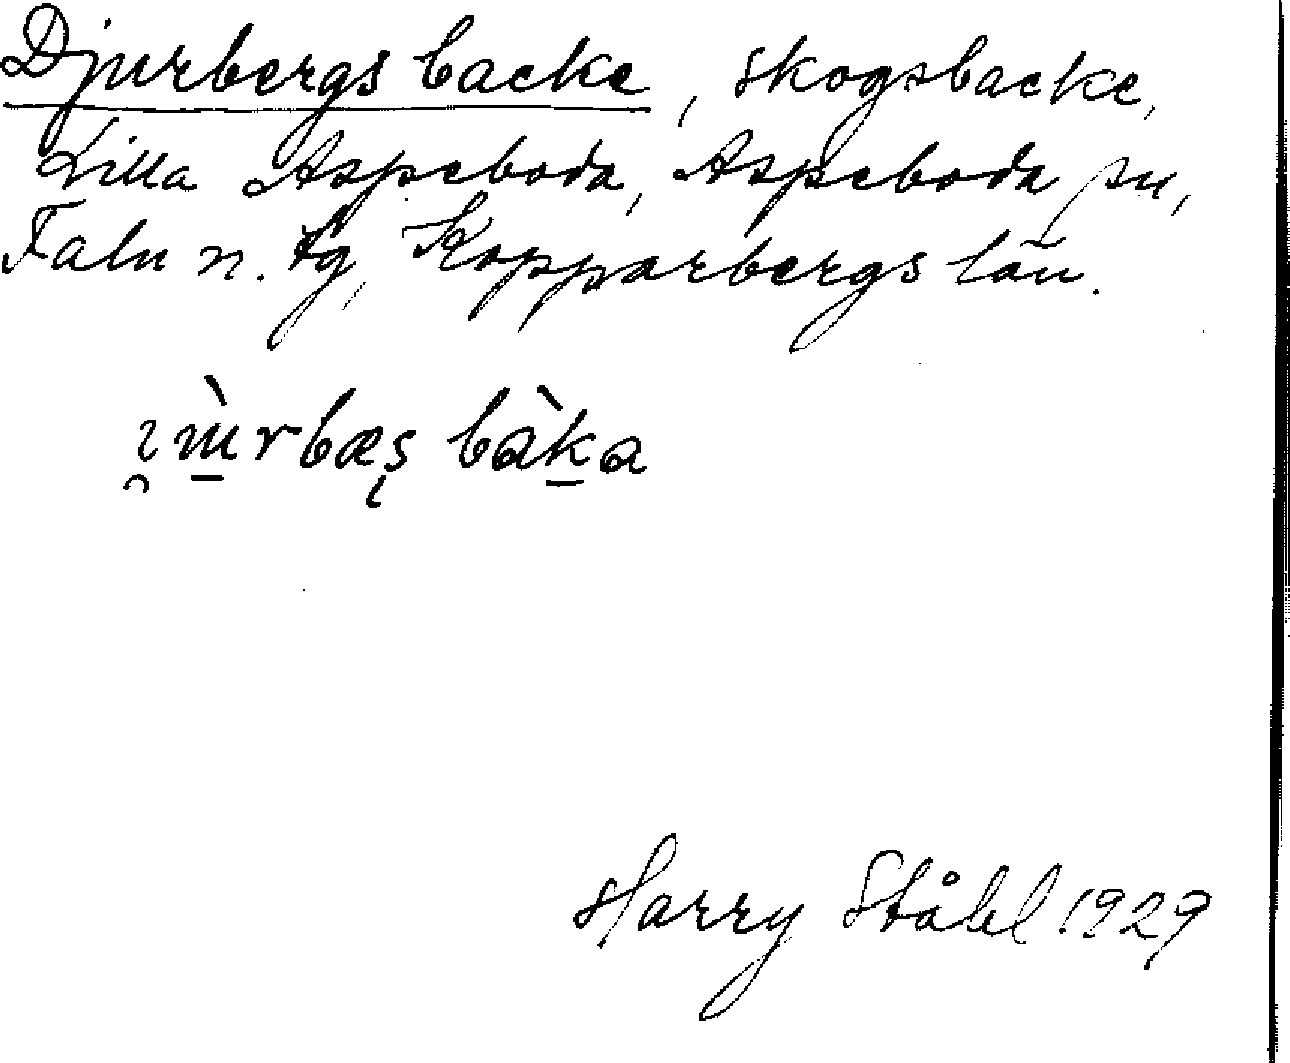 Djurbergs backe, skogsbacke,
Lilla Aspeboda, Aspeboda sn,
Falu n. tg, Kopparbergs län.
bàka
Harry Ståhl 1929